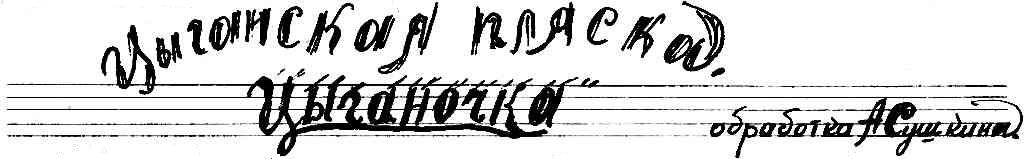 Цыганская пляска.
"Цыганочка"
обработка А Сушкина.